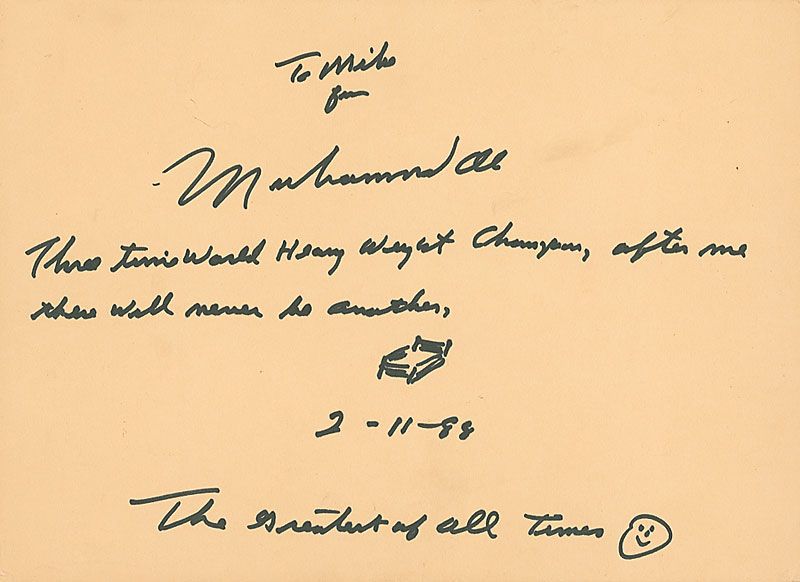 To Mike
from
Muhammad Ali
Three time World Heavy Weight Champion, after me
there will never be another,
2-11-88
The Greatest of all times